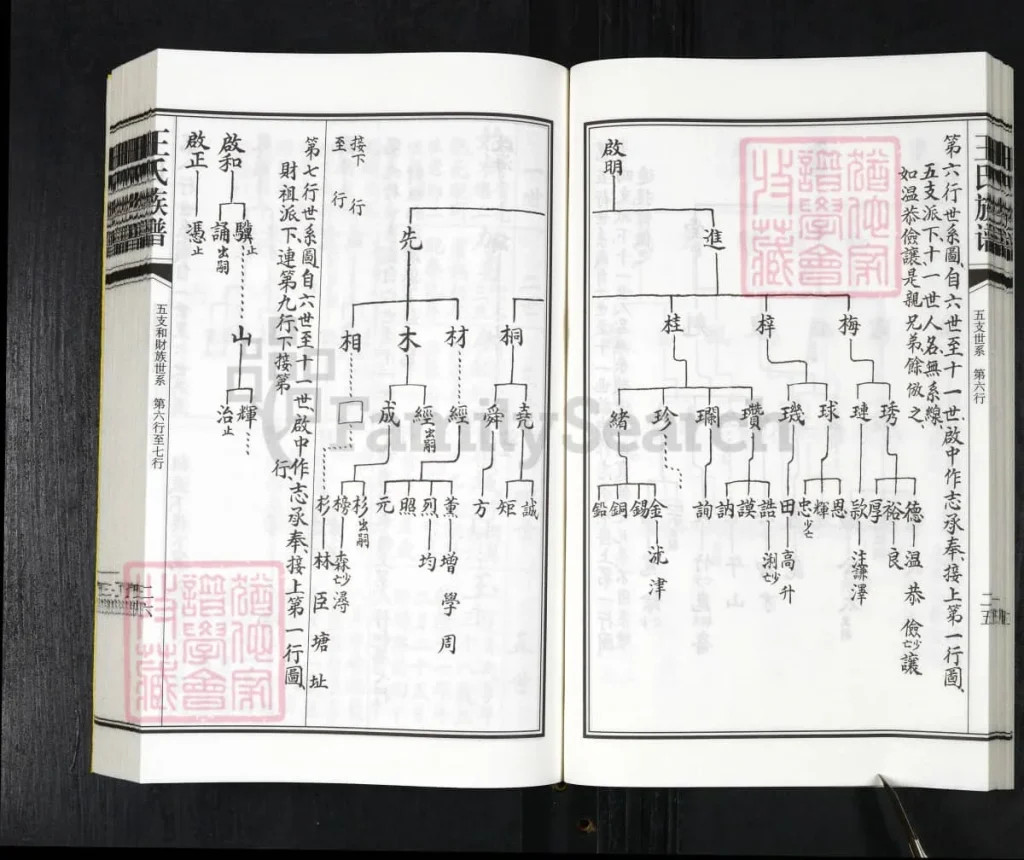 第六行世系圖、自六世至十一世、啟中作志承奉、接上第一行圖、
五支派下十一世人名無系線、
如温恭儉讓是親兄弟、餘倣之、
啟明
進
梅
梓
桂
琇
璉
球
璣
瓚
瓓
珍
緒
德
裕
厚
款
恩
輝
忠少亡
田
誥
謨
訥
詢
金
錫
銅
鉛
温 恭 儉少亡 讓
良
謙 澤
高 升
津
先
桐
材
木
相
堯
舜
經
經出嗣
成
誠
矩
方
薰
烈
照
元
杉出嗣
榜
杉
增 學 周
均
森少亡 潯
林 臣 塘 址
接下 行
至 行
第七行世系圖、自六世至十一世、啟中作志承奉、接上第一行圖、
財祖派下連第九行、下接第 行、
啟和
驥止
誦出嗣
山
輝
治止
啟正
憑止
王氏族譜
五支世系 第六行
二五
王氏族譜
五支和財族世系 第六行至七行
二六
FamilySearch